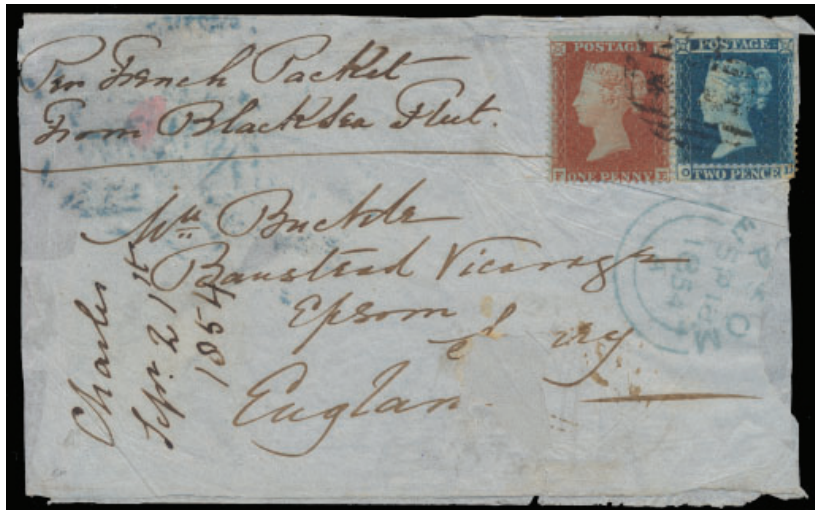 Per French Packet
From Black Sea Fleet.
POSTAGE
ONE PENNY
POSTAGE
TWO PENCE
Mrs Buckle
Banstead Vicarage
Epsom
England
Charles
Sepr. 21st
1854
EPSOM
1854